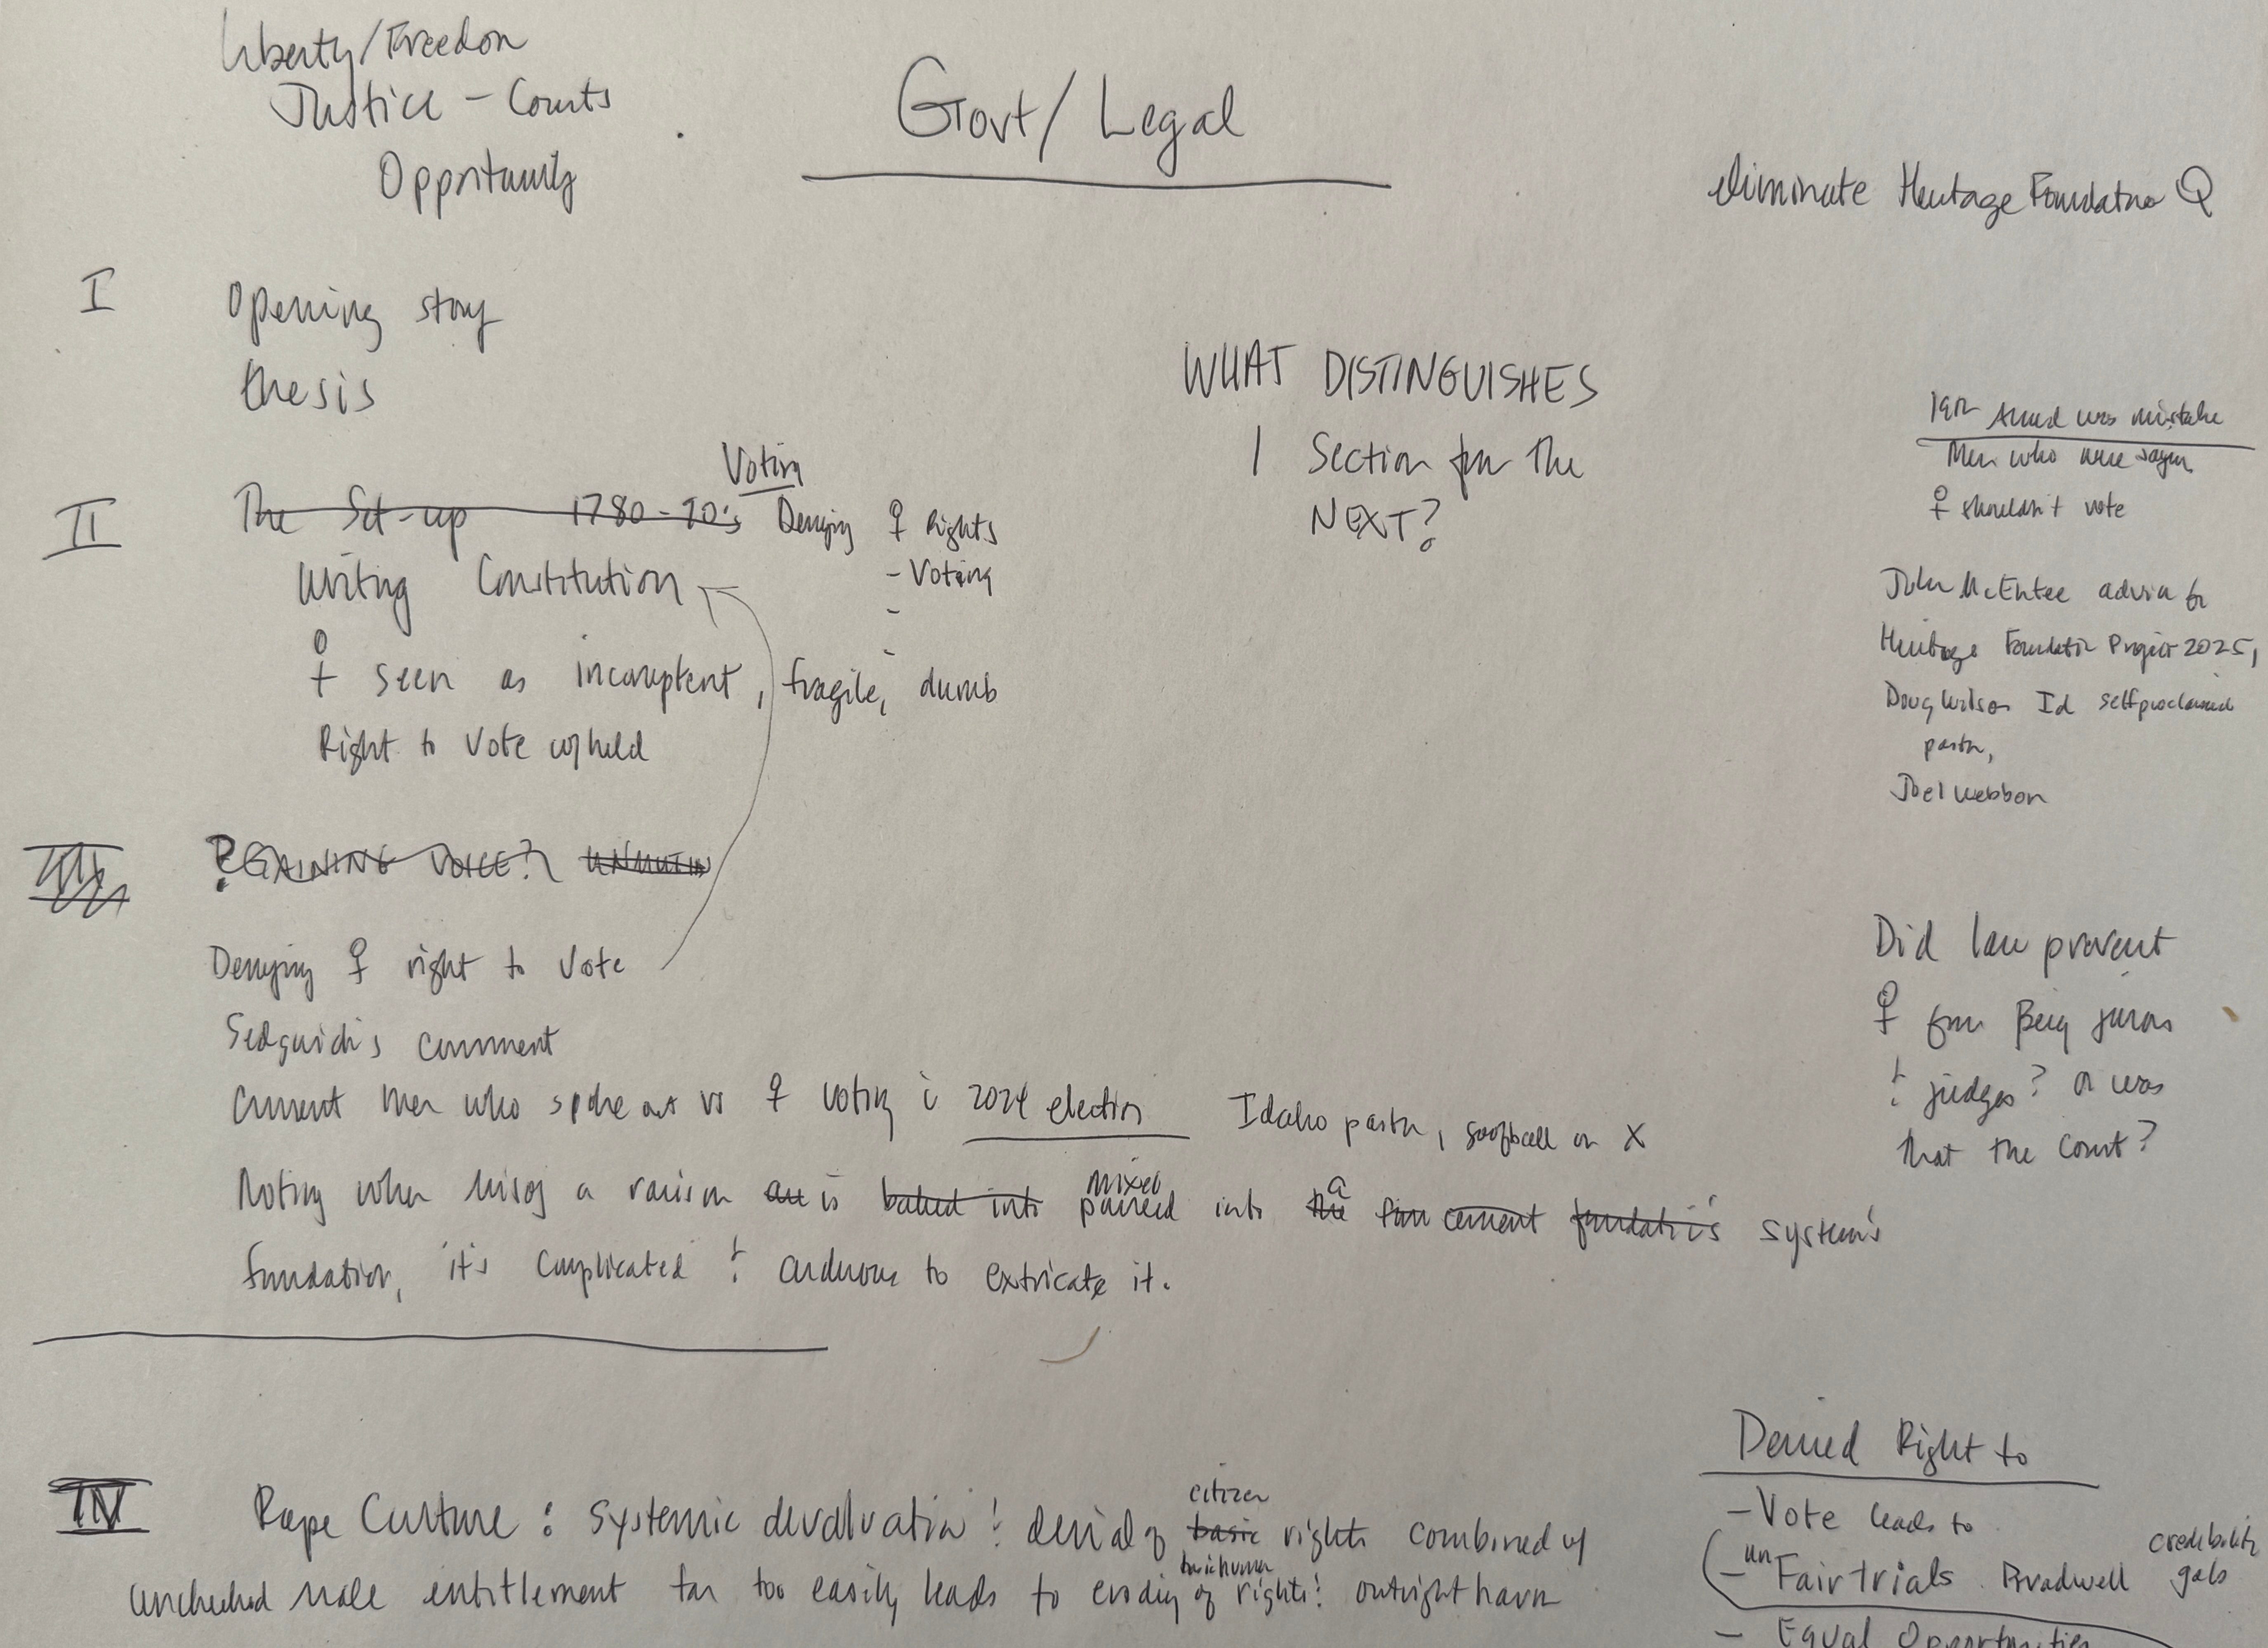 Liberty/Freedom
Justice - Courts
Opportunity
Govt/Legal
eliminate Heritage Foundation Q
I
Opening story
thesis
WHAT DISTINGUISHES
1 Section from the
NEXT?
19th Amend was mistake
Men who were sayin
♀ shouldn't vote
John McEntee advisor for
Heritage Foundatn Project 2025,
Doug Wilson Id self proclaimed
pastor,
Joel Webbon
Voting
II
The Set-up 1780-90's Denying ♀ Rights
- Voting
-
-
Writing Constitution
♀ seen as incompetent, fragile, dumb
Right to Vote w/held
III
? GAINING VOICE?
Denying ♀ right to vote
Sedgwick's comment
Current men who spoke out vs ♀ voting i 2024 election
Idaho pastor, goofball on X
Noting when misog a racism is baked into mixed poured into the a cement foundation's system's
foundation, it's complicated & arduous to extricate it.
Did law prevent
♀ from Being jurors
& judges? or was
that the court?
IV
Rape Culture: systemic devaluation & denial of basic citizen rights combined w/
unchecked male entitlement far too easily leads to eroding of basic human rights & outright harm
Denied Right to
- Vote leads to
- unFair trials Bradwell credibility gaps
- Equal Opportunities